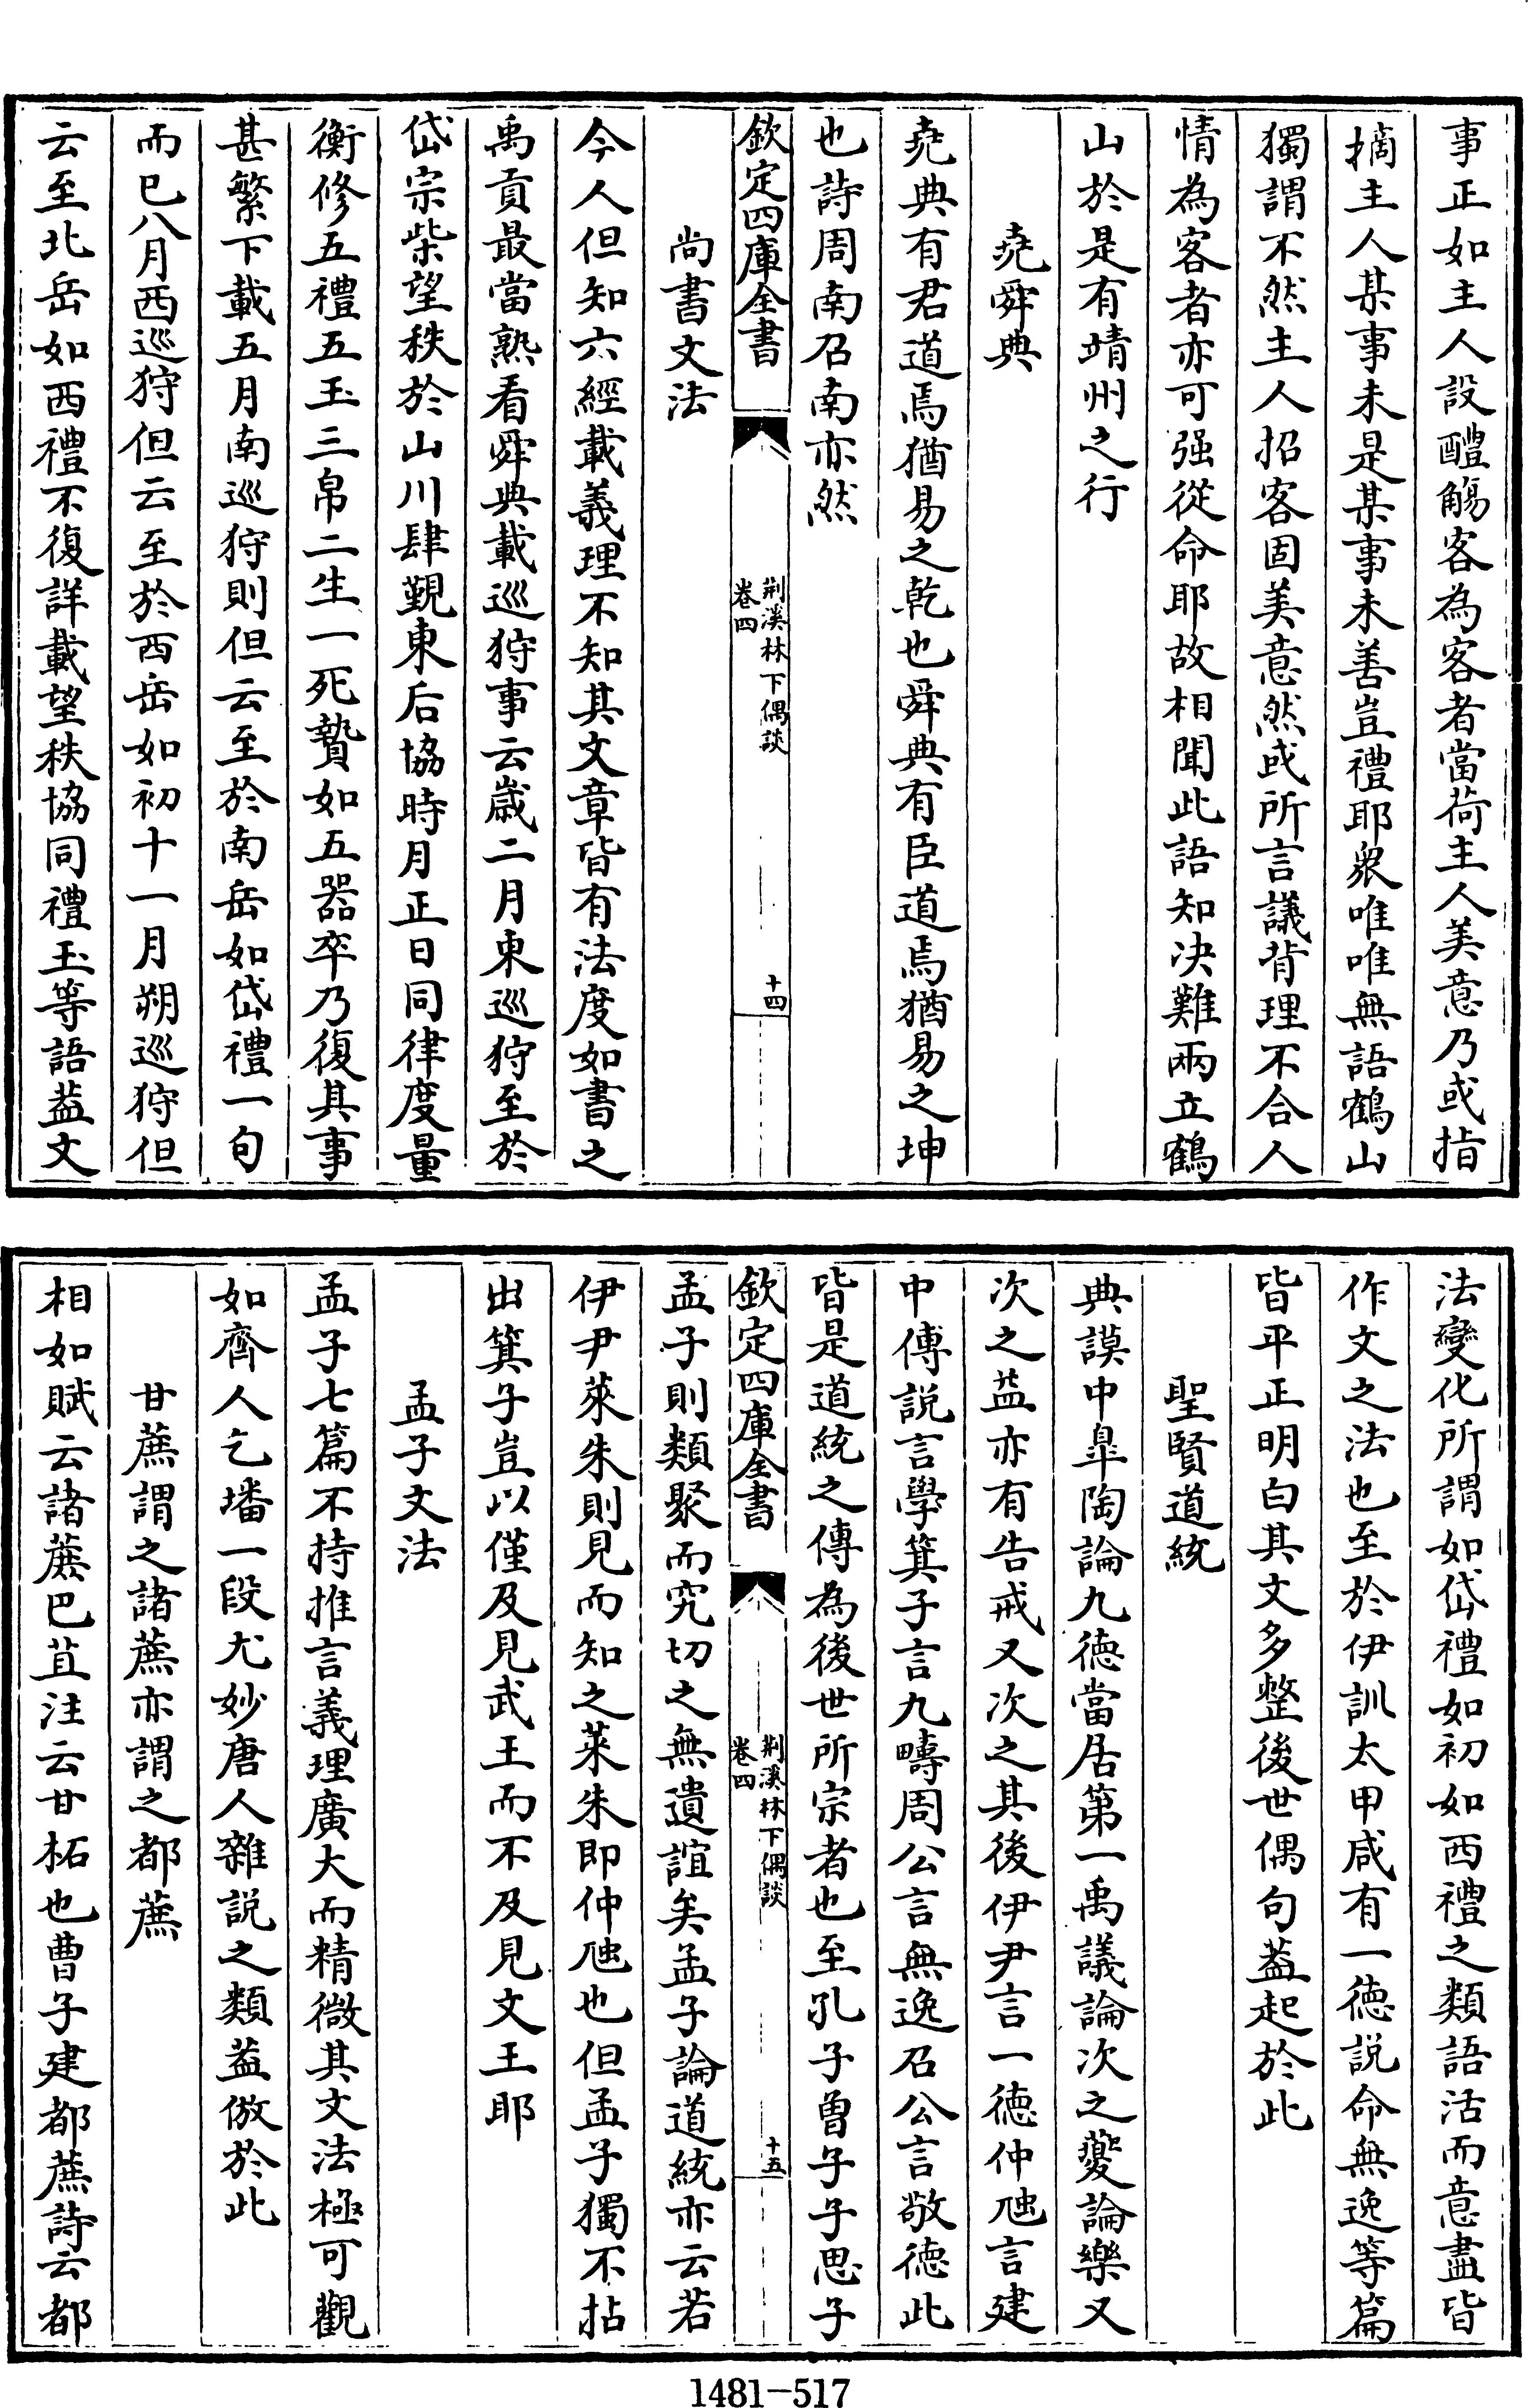 事正如主人設醴觴客為客者當荷主人美意乃或指
摘主人某事未是某事未善豈禮耶衆唯唯無語鶴山
獨謂不然主人招客固美意然或所言議背理不合人
情為客者亦可强從命耶故相聞此語知决難兩立鶴
山於是有靖州之行
堯舜典
堯典有君道焉猶易之乾也舜典有臣道焉猶易之坤
也詩周南召南亦然
欽定四庫全書
荆溪林下偶談
卷四
十四
尚書文法
今人但知六經載義理不知其文章皆有法度如書之
禹貢最當熟看舜典載巡狩事云歲二月東巡狩至於
岱宗柴望秩於山川肆覲東后協時月正日同律度量
衡修五禮五玉三帛二生一死贄如五器卒乃復其事
甚繁下載五月南巡狩則但云至於南岳如岱禮一句
而已八月西巡狩但云至於西岳如初十一月朔巡狩但
云至北岳如西禮不復詳載望秩協同禮玉等語葢文
法變化所謂如岱禮如初如西禮之類語活而意盡皆
作文之法也至於伊訓太甲咸有一德説命無逸等篇
皆平正明白其文多整後世偶句葢起於此
聖賢道統
典謨中臯陶論九德當居第一禹議論次之夔論樂又
次之益亦有告戒又次之其後伊尹言一德仲虺言建
中傅説言學箕子言九疇周公言無逸召公言敬德此
皆是道統之傳為後世所宗者也至孔子曾子子思子
欽定四庫全書
荆溪林下偶談
卷四
十五
孟子則類聚而究切之無遺誼矣孟子論道統亦云若
伊尹萊朱則見而知之萊朱即仲虺也但孟子獨不拈
出箕子豈以僅及見武王而不及見文王耶
孟子文法
孟子七篇不持推言義理廣大而精微其文法極可觀
如齊人乞墦一段尤妙唐人雜説之類葢倣於此
甘蔗謂之諸蔗亦謂之都蔗
相如賦云諸蔗巴苴注云甘柘也曹子建都蔗詩云都
1481-517